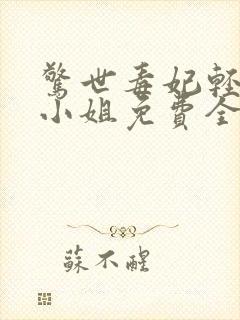 驚世毒妃輕
小姐免費全
蘇不醒